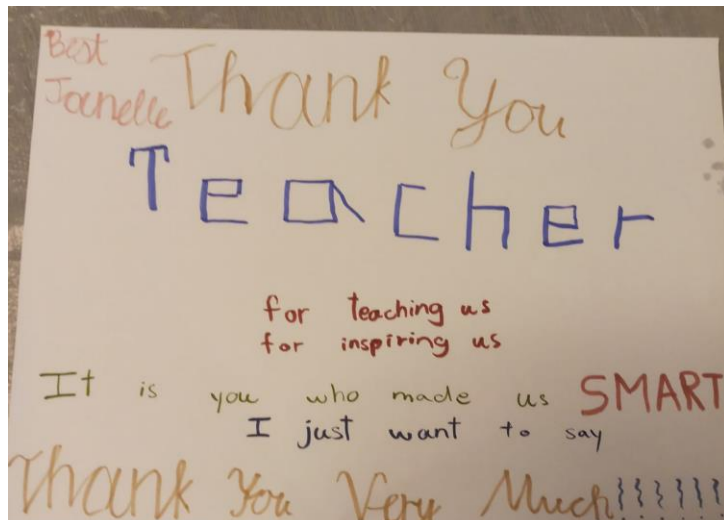 Best
Joenelle
Thank You
Teacher
for teaching us
for inspiring us
It is you who made us SMART
I just want to say
Thank You Very Much!!!!!!